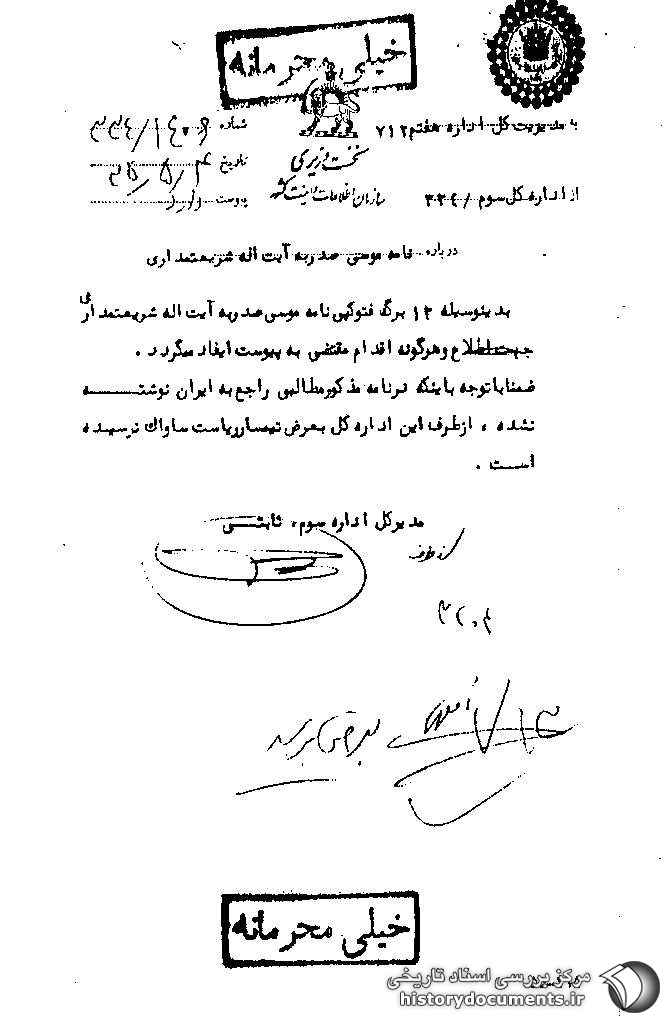 خیلی محرمانه
به مدیریت کل اداره هفتم ۷۱۲
نخست وزیری
سازمان اطلاعات و امنیت کشور
شماره
تاریخ
پیوست
از اداره کل سوم / ۳۳۴
درباره نامه موسی صدر به آیت اله شریعتمداری
بدینوسیله ۱۲ برگ فتوکپی نامه موسی صدر به آیت اله شریعتمداری
جهت اطلاع و هرگونه اقدام مقتضی به پیوست ایفاد میگردد .
ضمنا با توجه باینکه در نامه مذکور مطالبی راجع به ایران نوشته
نشده ، از طرف این اداره کل بعرض تیمسار ریاست ساواك نرسیده
است .
مدیرکل اداره سوم، ثابتی
از طرف
خیلی محرمانه
مرکز بررسی اسناد تاریخی
historydocuments.ir